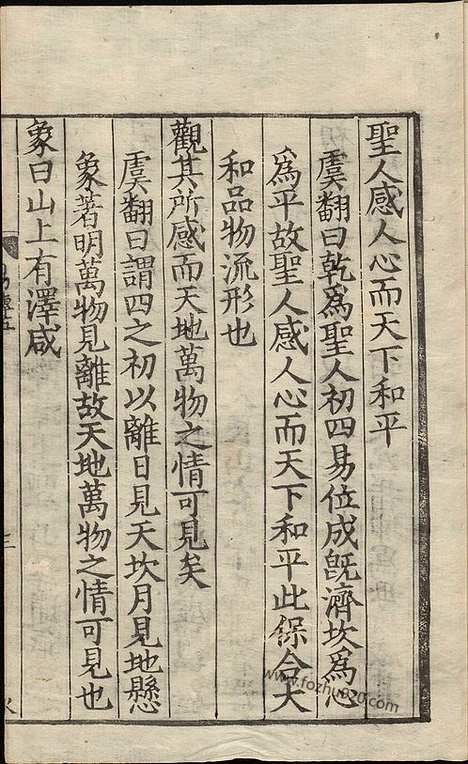 聖人感人心而天下和平
虞翻曰乾爲聖人初四易位成旣濟坎爲心
爲平故聖人感人心而天下和平此保合太
和品物流形也
觀其所感而天地萬物之情可見矣
虞翻曰謂四之初以離日見天坎月見地懸
象著明萬物見離故天地萬物之情可見也
象曰山上有澤咸
www.fozhu920.com